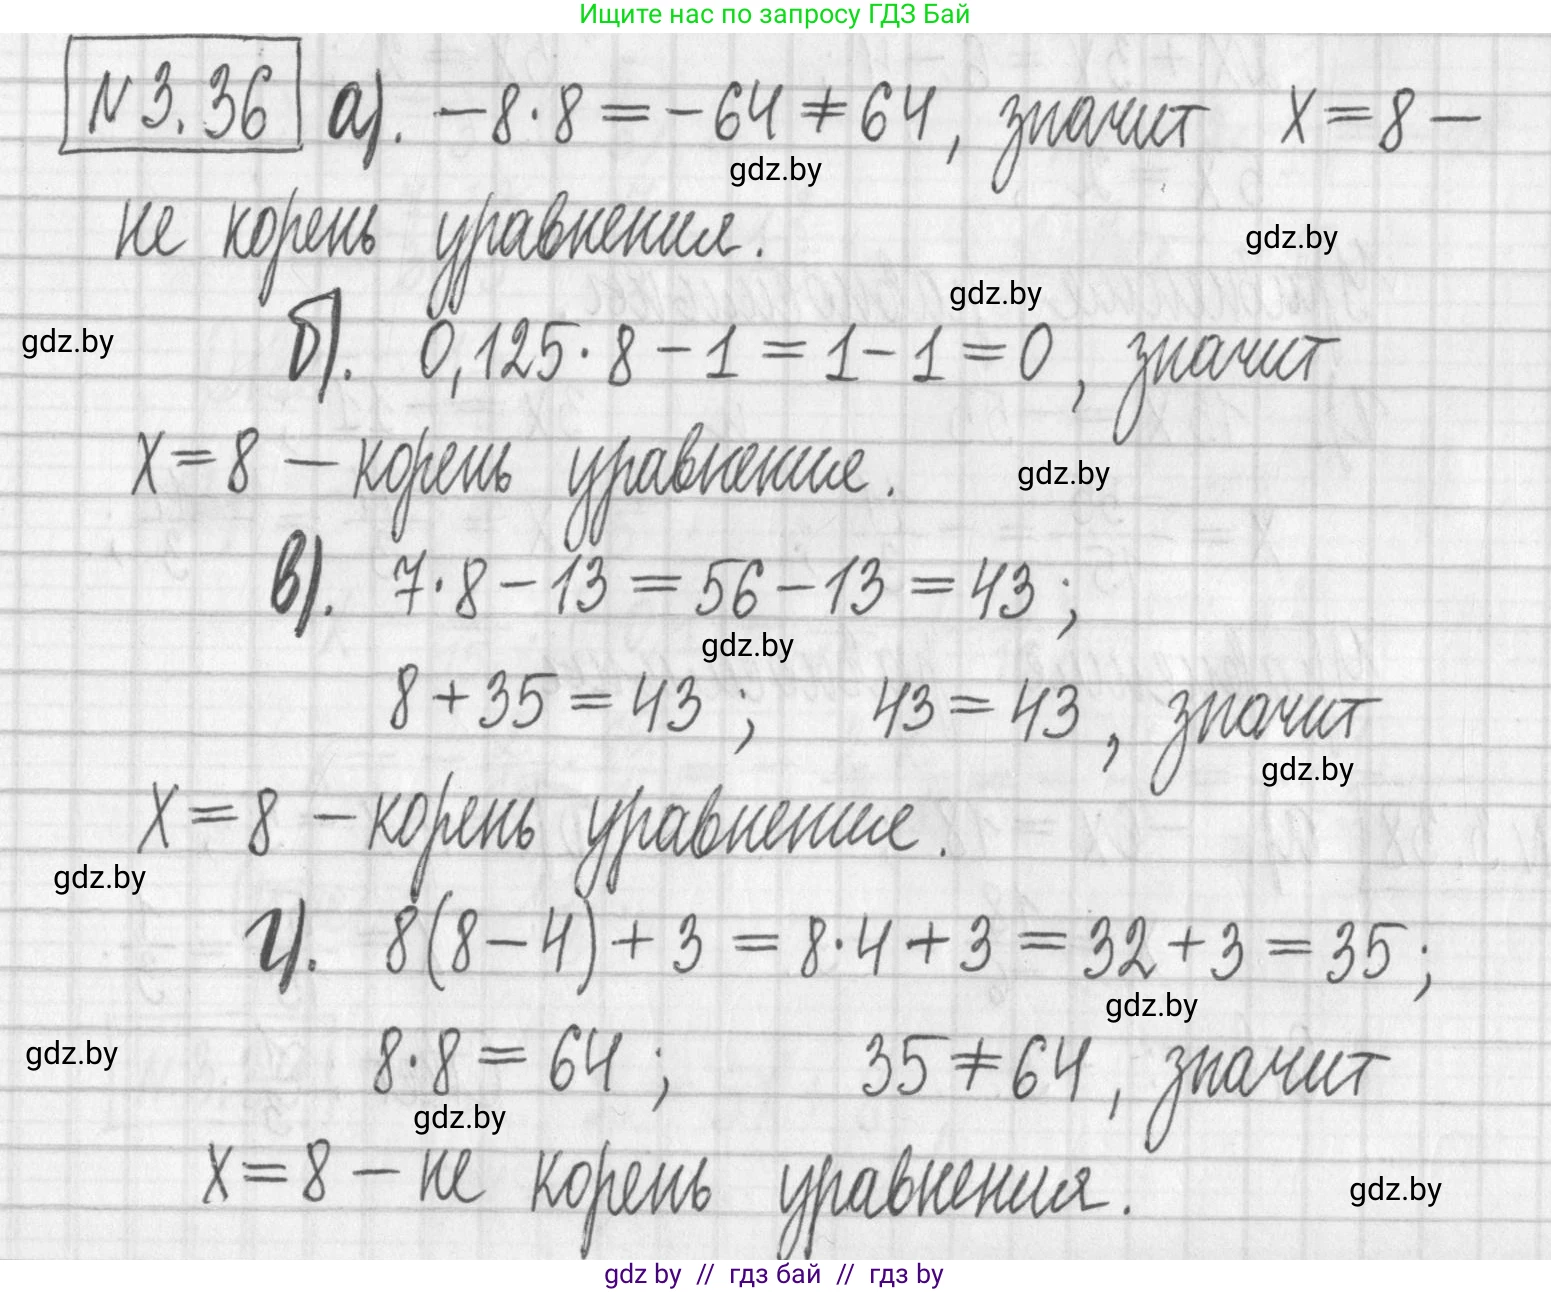 Ищите нас по запросу ГДЗ Бай
N 3.36 а). −8·8 = −64 ≠ 64, значит x=8 −
gdz.by
не корень уравнения.
gdz.by
gdz.by
gdz.by
б). 0,125·8 − 1 = 1 − 1 = 0, значит
x=8 − корень уравнение.
gdz.by
в). 7·8 − 13 = 56 − 13 = 43;
gdz.by
8 + 35 = 43; 43 = 43, значит
gdz.by
x = 8 − корень уравнение.
gdz.by
г). 8(8 − 4) + 3 = 8·4 + 3 = 32 + 3 = 35;
gdz.by
gdz.by
8·8 = 64; 35 ≠ 64, значит
gdz.by
x=8 − не корень уравнения.
gdz.by
gdz by // гдз бай // гдз by